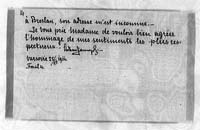 à Breslau, son adresse m'est inconnue. —
Je vous prie Madame de vouloir bien agréer
l'hommage de mes sentiments les plus res-
pectueux.
Varsovie